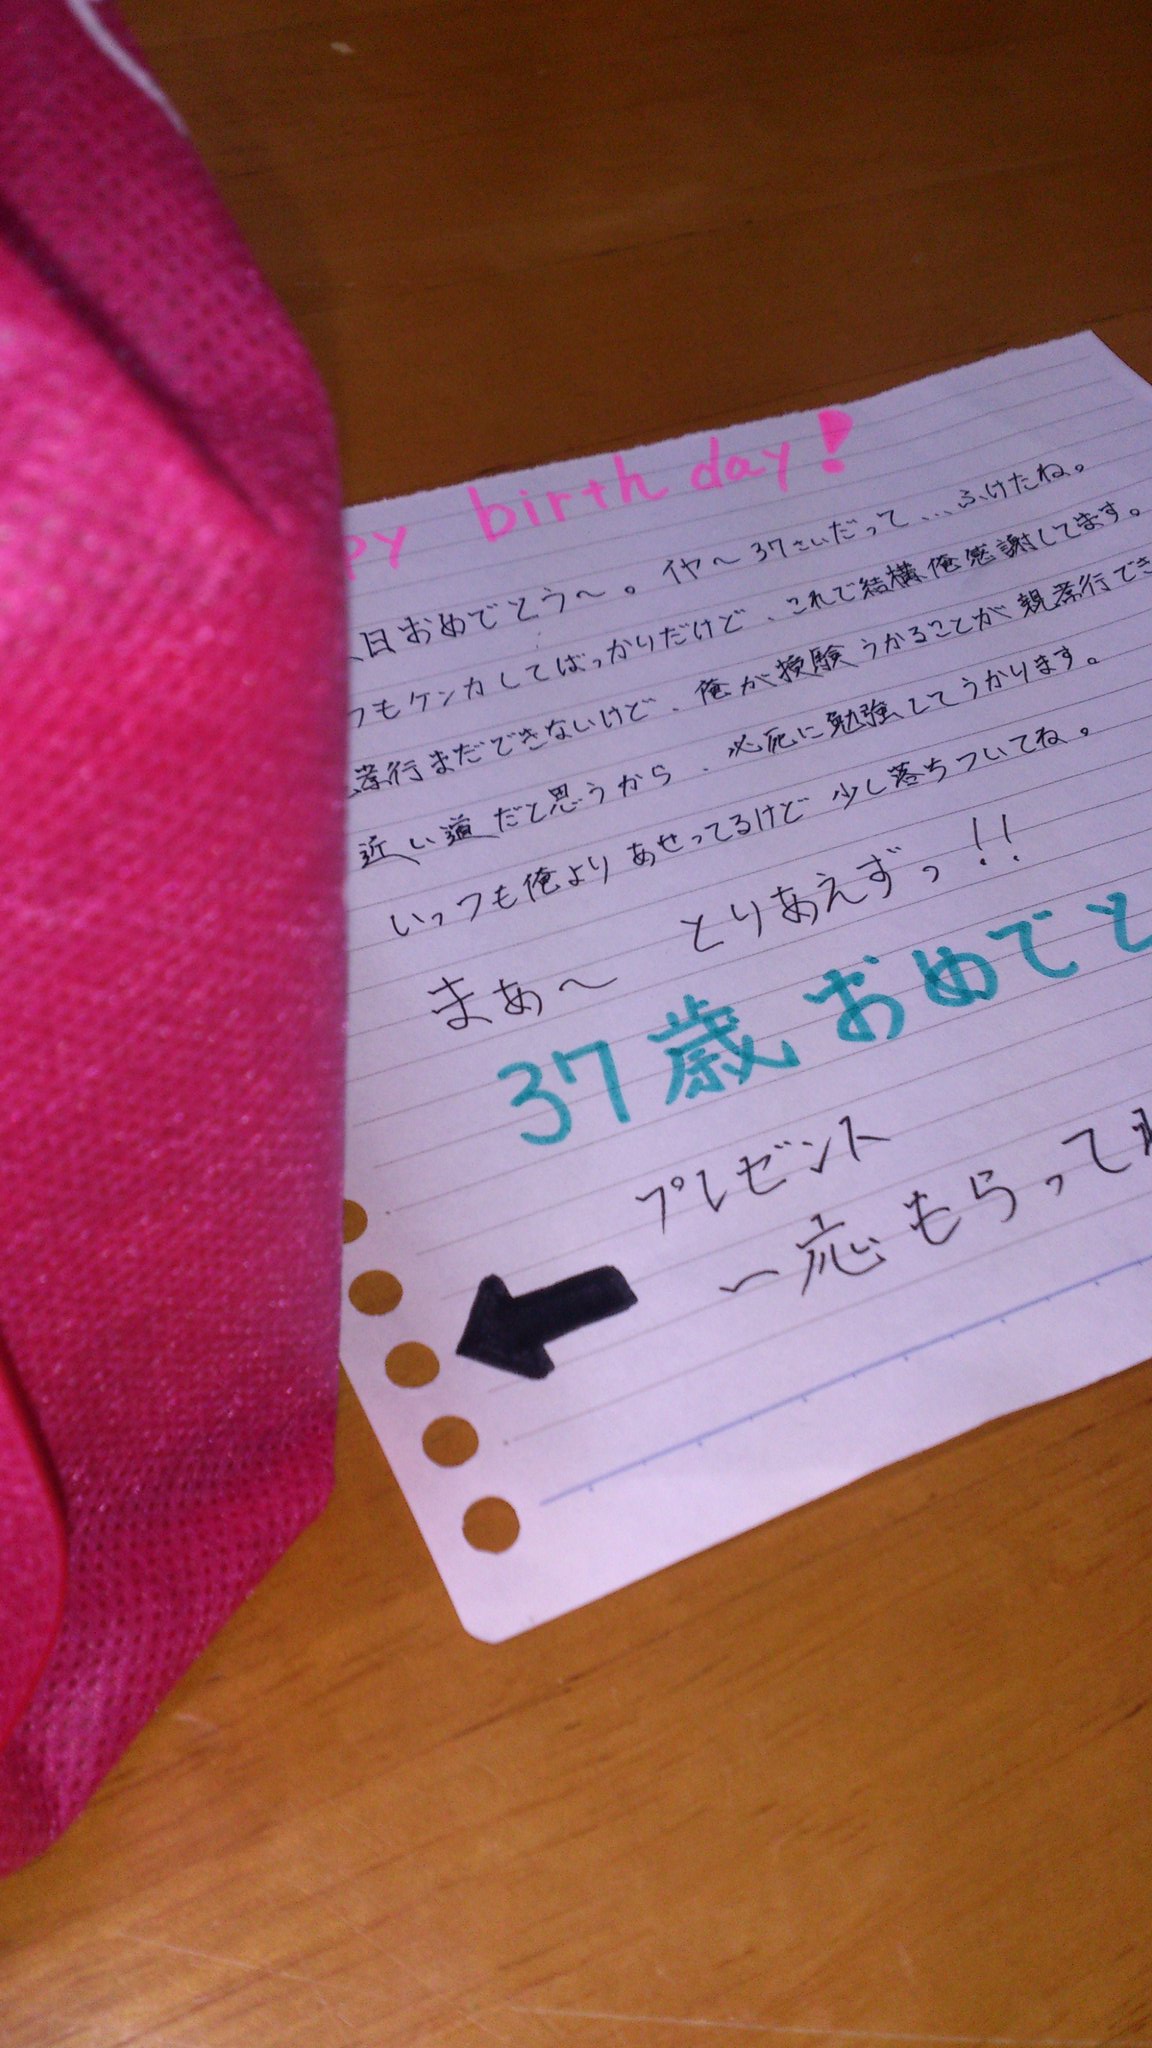 py birthday!
日おめでとう〜。イヤ〜37さいだって...ふけたね。
つもケンカしてばっかりだけど、これで結構俺感謝してます。
孝行まだできないけど、俺が授験うかることが親孝行でき
近い道だと思うから、必死に勉強してうかります。
いっつも俺よりあせってるけど少し落ちついてね。
まぁ〜 とりあえずっ!!
37歳おめでと
プレゼント
一応もらって